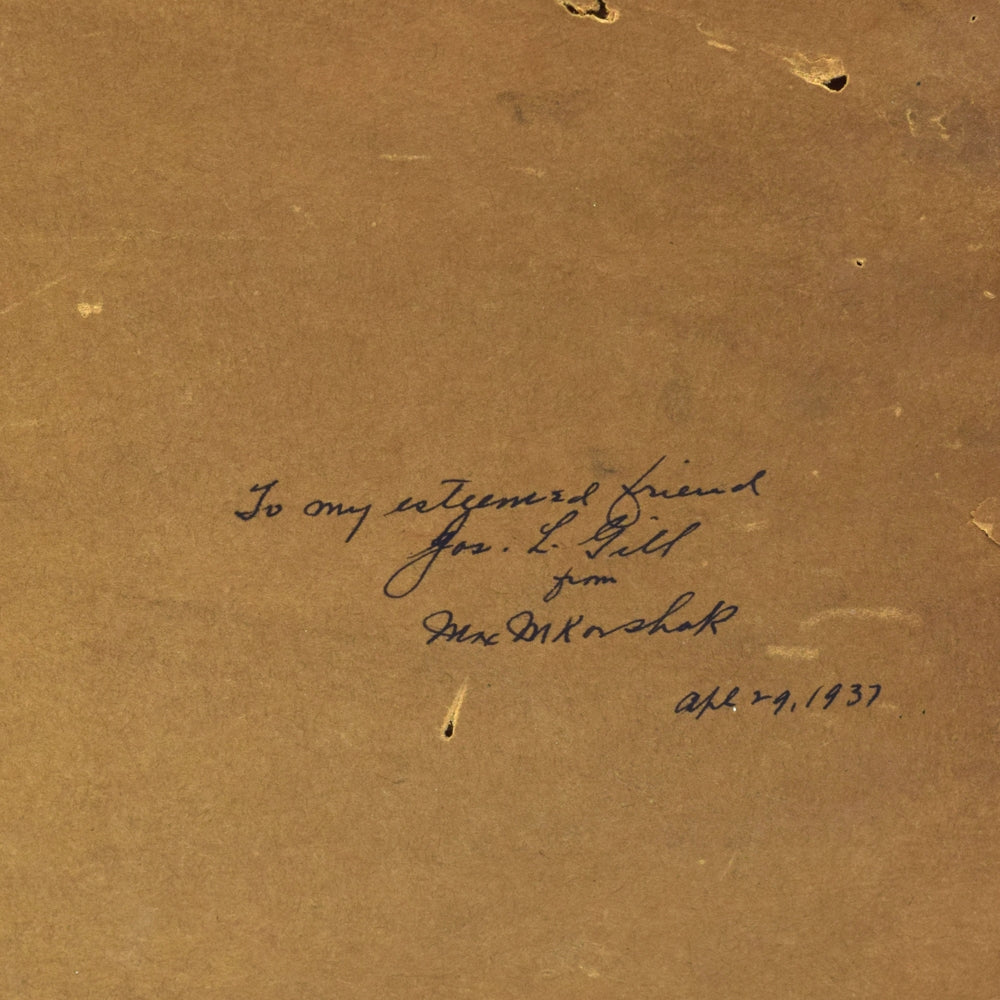 To my esteemed friend
Jos. L. Gill
from
Max M Korshak
Apl 29, 1937